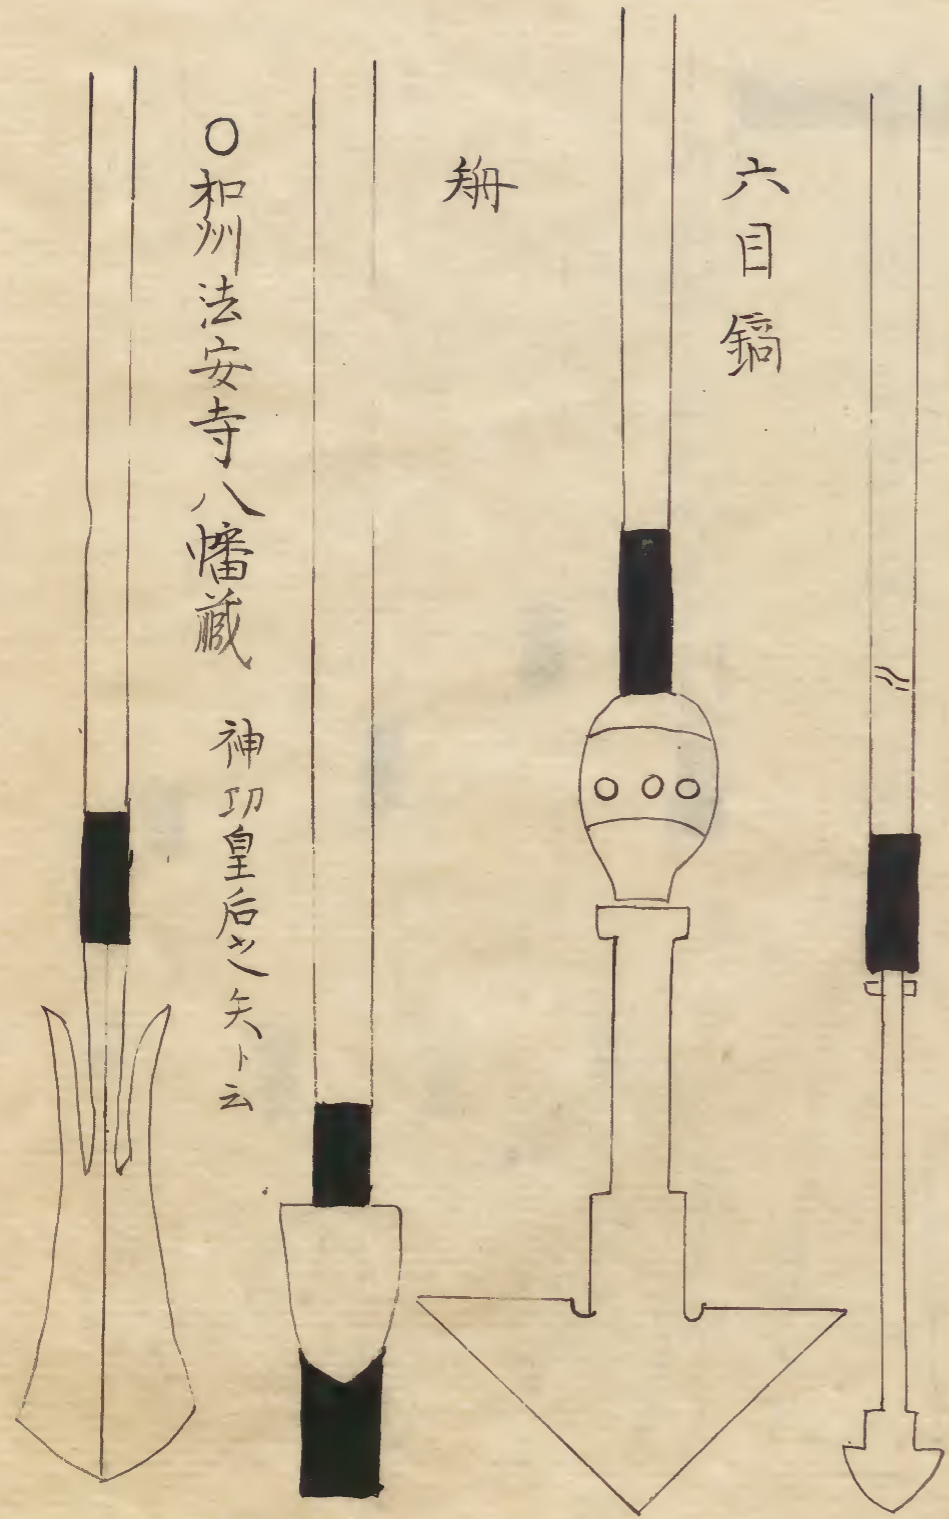 六目鏑
○和州法安寺八幡蔵 神功皇后之矢ト云